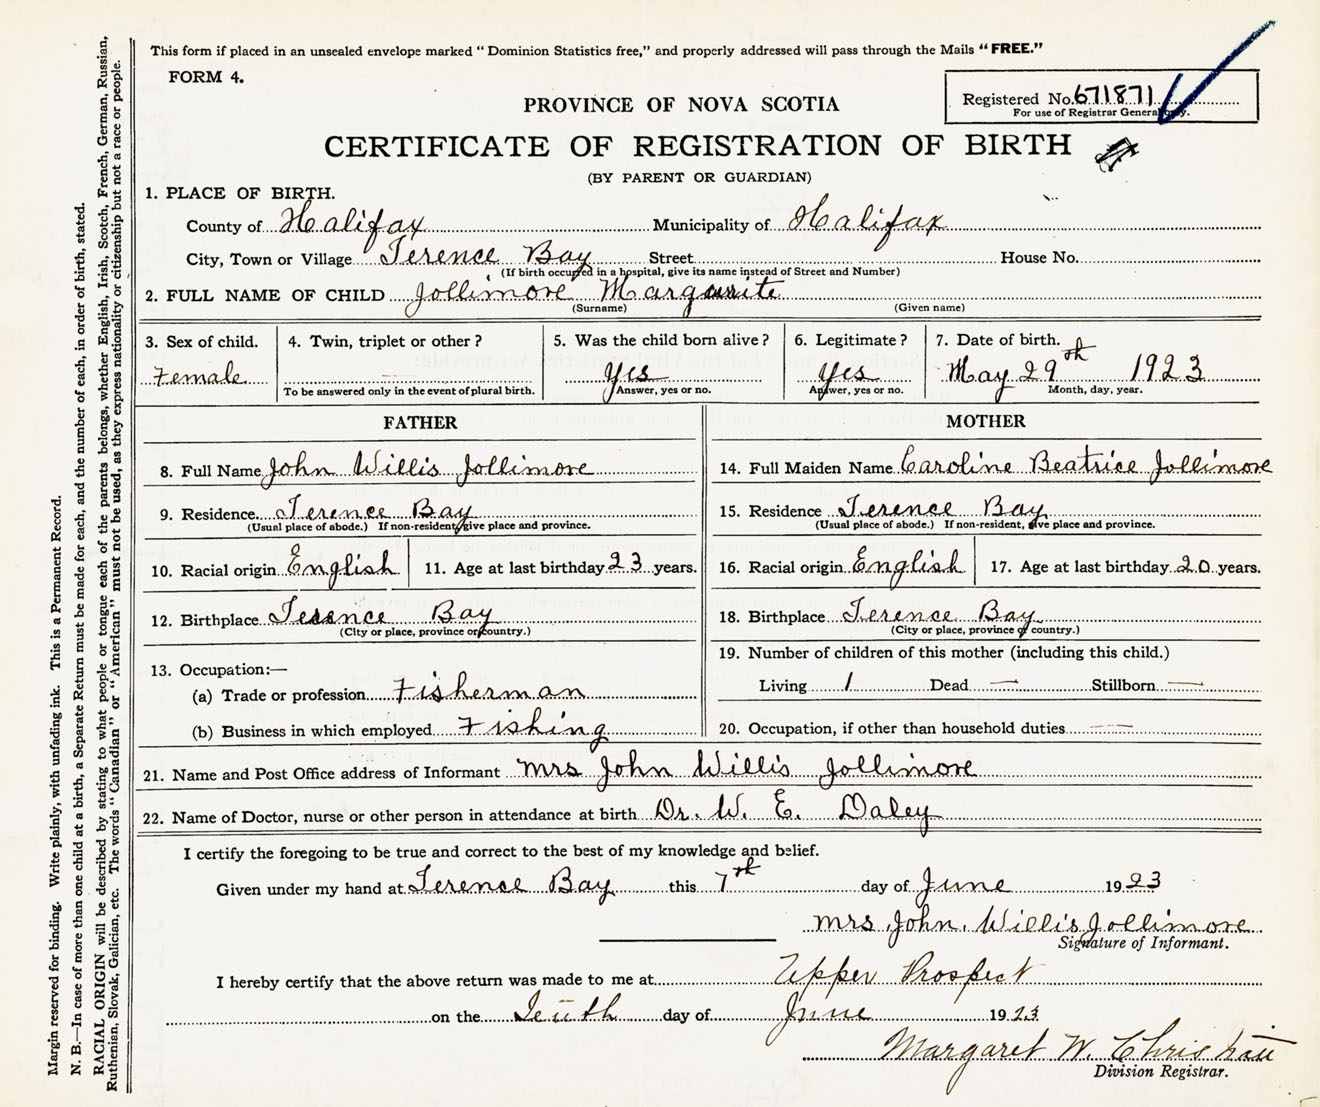 This form if placed in an unsealed envelope marked “ Dominion Statistics free,” and properly addressed will pass through the Mails “ FREE.”
FORM 4.
Registered No. 671871
For use of Registrar General only.
PROVINCE OF NOVA SCOTIA
CERTIFICATE OF REGISTRATION OF BIRTH
(BY PARENT OR GUARDIAN)
1. PLACE OF BIRTH.
County of Halifax Municipality of Halifax
City, Town or Village Terence Bay Street House No.
(If birth occurred in a hospital, give its name instead of Street and Number)
2. FULL NAME OF CHILD Jollimore Margurite
(Surname) (Given name)
3. Sex of child. 4. Twin, triplet or other ? 5. Was the child born alive ? 6. Legitimate ? 7. Date of birth.
Female — Yes Yes May 29th 1923
To be answered only in the event of plural birth. Answer, yes or no. Answer, yes or no. Month, day, year.
FATHER
8. Full Name John Willis Jollimore
9. Residence Terence Bay
(Usual place of abode.) If non-resident, give place and province.
10. Racial origin English 11. Age at last birthday 23 years.
12. Birthplace Terence Bay
(City or place, province or country.)
13. Occupation:—
(a) Trade or profession Fisherman
(b) Business in which employed Fishing
MOTHER
14. Full Maiden Name Caroline Beatrice Jollimore
15. Residence Terence Bay
(Usual place of abode.) If non-resident, give place and province.
16. Racial origin English 17. Age at last birthday 20 years.
18. Birthplace Terence Bay
(City or place, province or country.)
19. Number of children of this mother (including this child.)
Living 1 Dead — Stillborn —
20. Occupation, if other than household duties —
21. Name and Post Office address of Informant Mrs John Willis Jollimore
22. Name of Doctor, nurse or other person in attendance at birth Dr. W. E. Daley
I certify the foregoing to be true and correct to the best of my knowledge and belief.
Given under my hand at Terence Bay this 7th day of June 1923
Mrs John Willis Jollimore
Signature of Informant.
I hereby certify that the above return was made to me at Upper Prospect
on the Tenth day of June 1923
Margaret W. Christian
Division Registrar.
Margin reserved for binding. Write plainly, with unfading ink. This is a Permanent Record.
N. B.—In case of more than one child at a birth, a Separate Return must be made for each, and the number of each, in order of birth, stated.
RACIAL ORIGIN will be described by stating to what people or tongue each of the parents belongs, whether English, Irish, Scotch, French, German, Russian,
Ruthenian, Slovak, Galician, etc. The words “ Canadian ” or “ American ” must not be used, as they express nationality or citizenship but not a race or people.